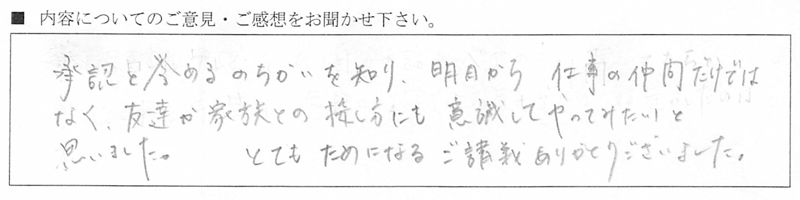 ■ 内容についてのご意見・ご感想をお聞かせ下さい。
承認と誉めるのちがいを知り、明日から 仕事の仲間だけでは
なく、友達か家族との接し方にも 意識してやってみたいと
思いました。 とても ためになる ご講義ありがとうございました。